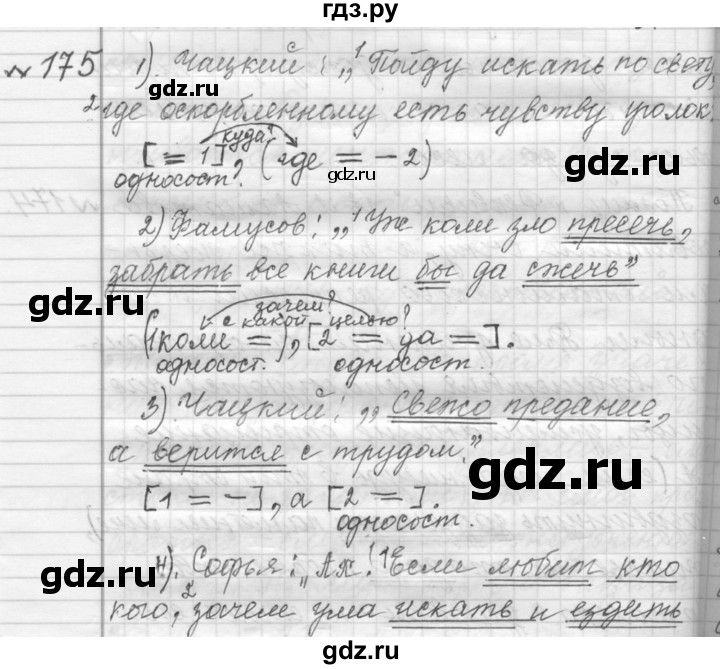 гдз.ру
№ 175 1). Чацкий: „ ¹Пойду искать по свету,
²где оскорбленному есть чувству уголок.
куда?
[= 1], (где = – 2)
односост.
2) Фамусов: „ ¹Уж коли зло пресечь,
забрать все книги бы да сжечь”
зачем?
с какой целью?
(1 коли =), [2 = да =].
односост. односост.
3). Чацкий: „ Свежо предание,
а верится с трудом.”
[1 = –], а [2 =].
односост.
4). Софья: „Ах! ¹Если любит кто
кого, ²зачем ума искать и ездить
gdz.ru
gdz.ru
gdz.ru
gdz.ru
gdz.ru
gdz.ru
gdz.ru
gdz.ru
gdz.ru